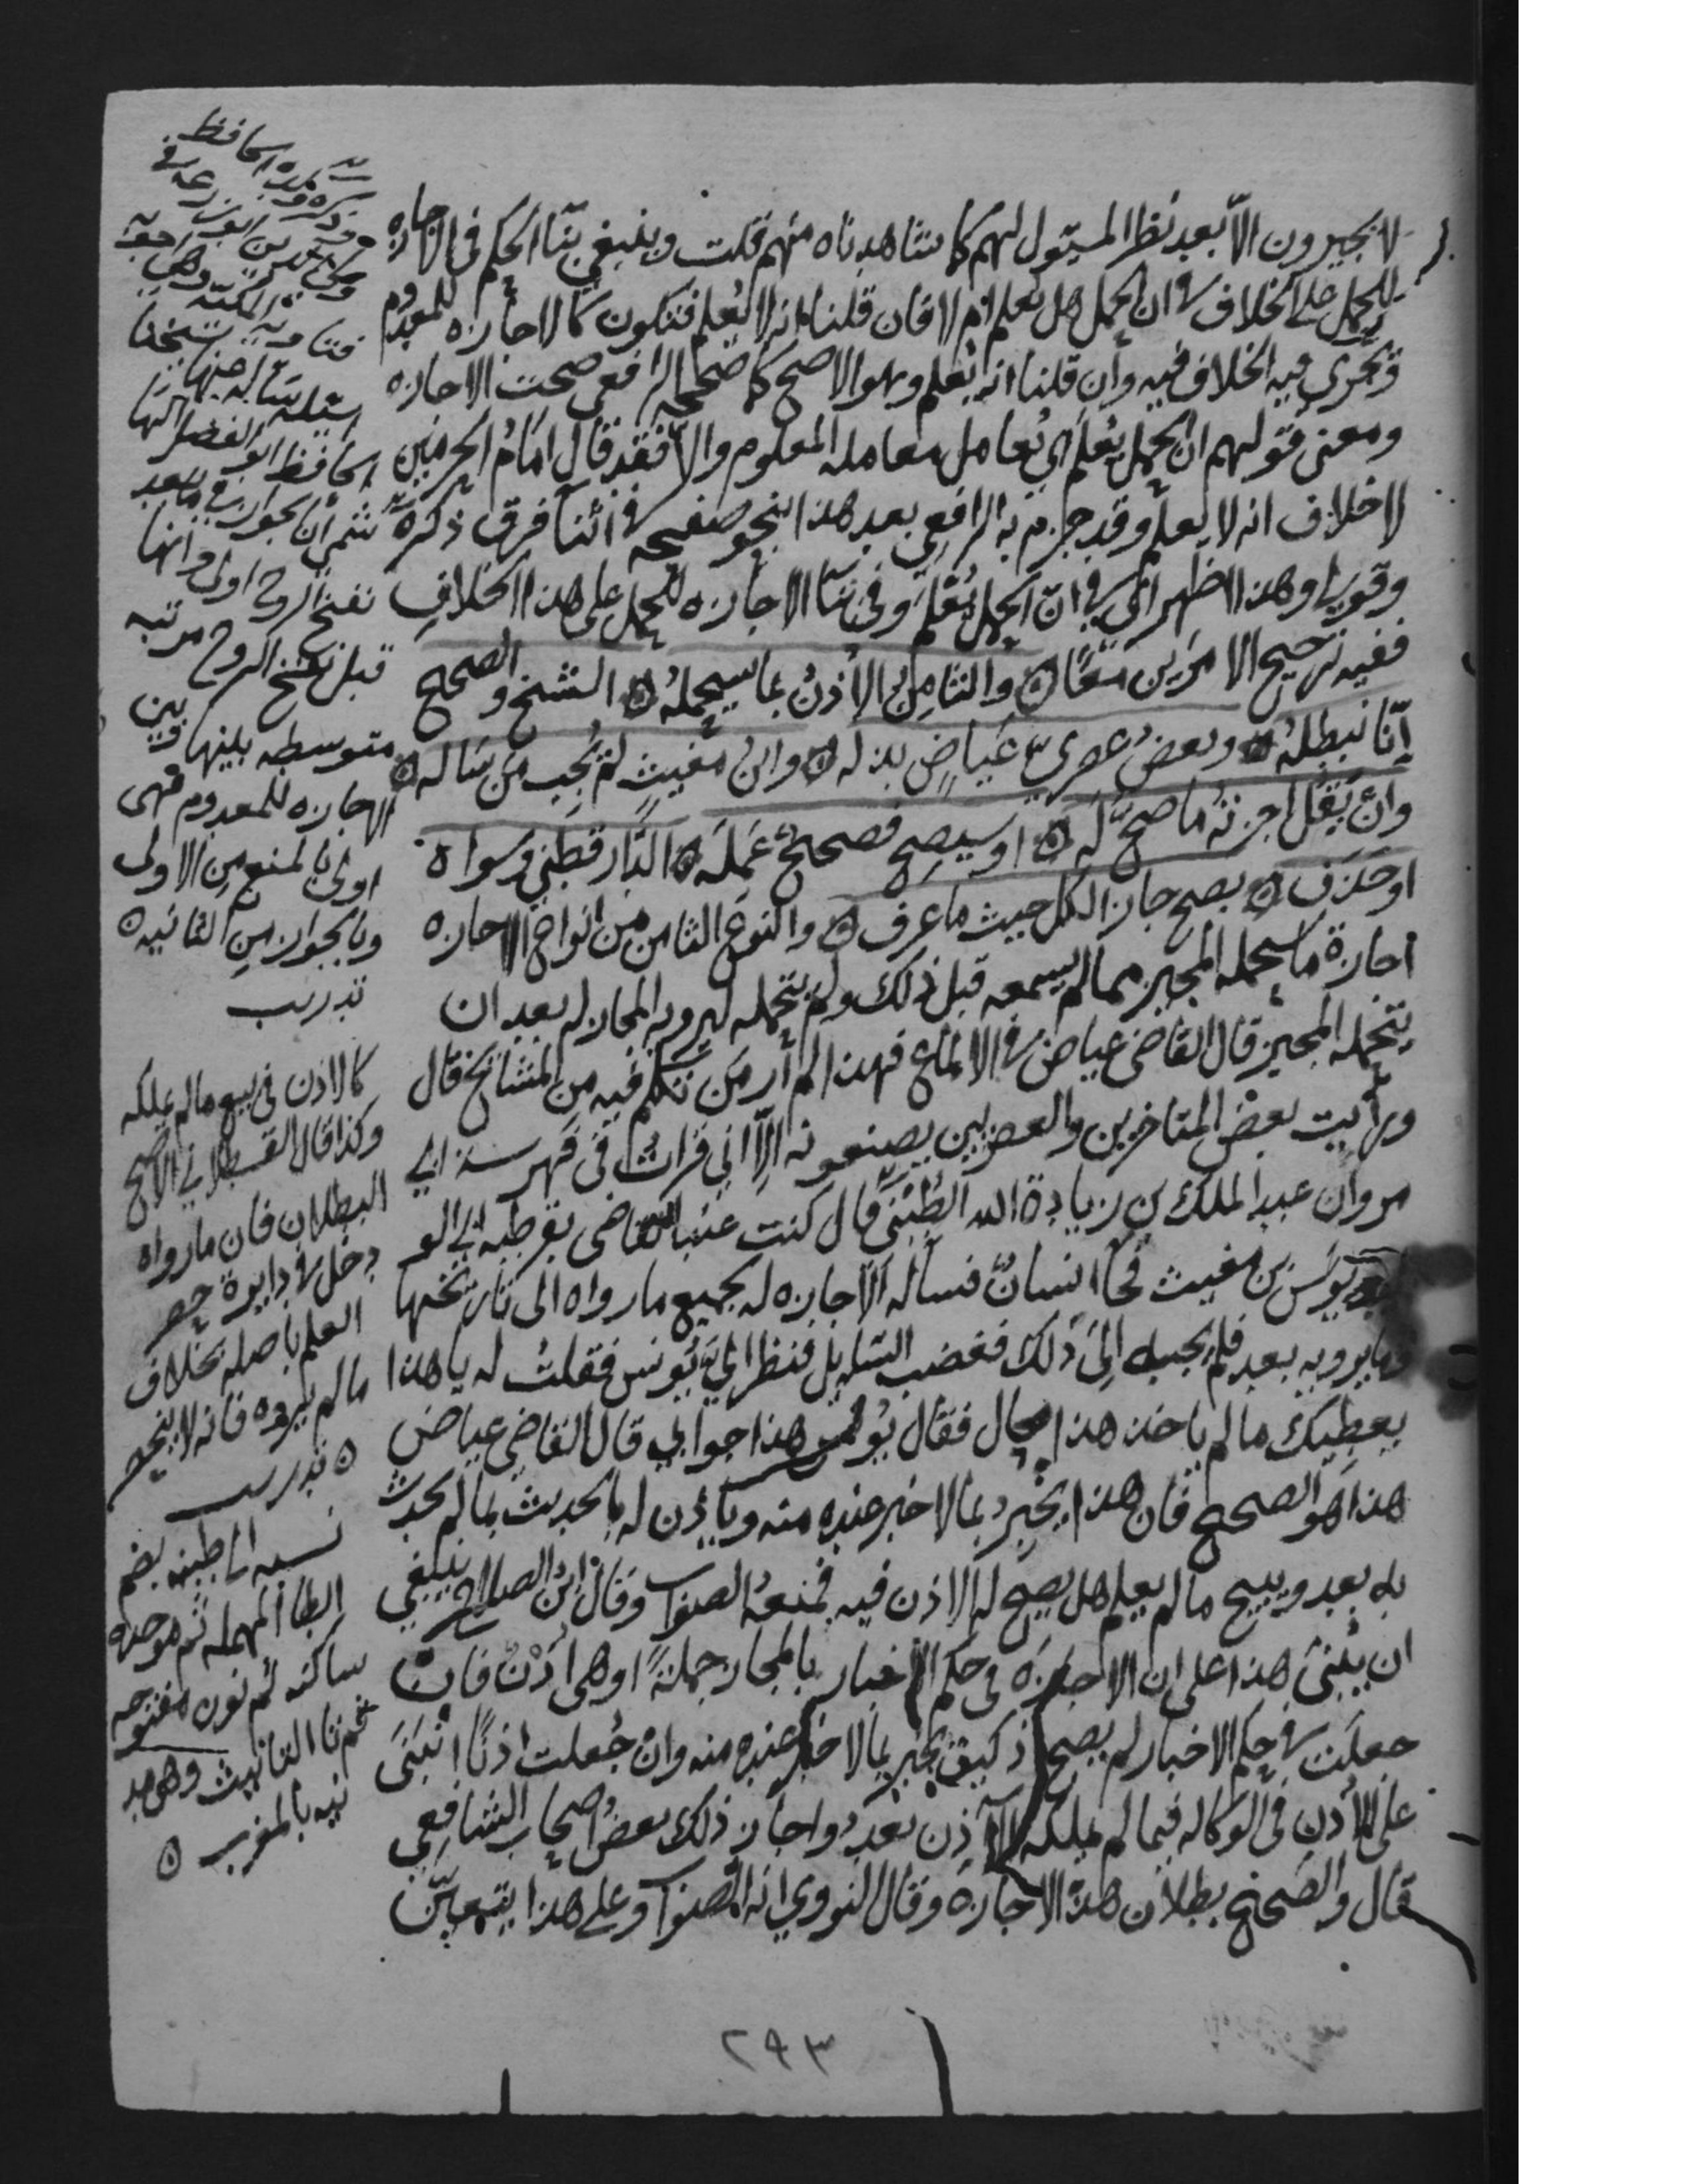 لا يجيزون الاّ بعد نظر المسؤل لهم كما شاهدناه منهم قلت وينبغي بنا الحكم في الاجازه
للحمل على الخلاف في ان الحمل هل يُعلم ام لا فان قلنا انه لا يُعلم فتكون كالاجازه للمعدوم
وتجري فيه الخلاف فيه وان قلنا انه يُعلم وهو الاصح كما صححه الرافعي صحت الاجازه
ومعنى قولهم ان الحمل يُعلم اي يُعامل معامله المعلوم والاّ فقد قال امام الحرمين
لا خلاف انه لا يعلم وقد جزم به الرافعي بعد هذا بنحو صفحه في اثنا فرق ذكره
وقولي وهذا اظهر اي في انّ الحمل يُعلم وفي بنا الاجازه للحمل على هذا الخلاف
ففيه ترجيح الامرين معًا ۞ والثامن الاذن بما سيحمله ۞ الشيخ والصحيح
إنّا نبطله ۞ وبعض عصري عياض بذله ۞ وابن مغيث لم يُجب من ساله ۞
وان يقل اجزته ما صحّ له ۞ او سيصح فصحيح عمله ۞ الدارقطني وسواه
او حذف ۞ يصح جاز الكل حيث ما عرف ۞ والنوع الثامن من انواع الاجازه
اجازة ما سيحمله المجيز مما لم يسمعه قبل ذلك ولم يتحمله ليرويه المجاز له بعد ان
يتحمله المجيز قال القاضي عياض في الالماع فهذا لم أر من تكلم فيه من المشائخ قال
ورأيت بعض المتاخرين والعصريين يصنعونه الّا اني قرات في فهرسة ابي
مروان عبد الملك بن زيادة الله الطُبْني قال كنت عند القاضي بقرطبه ابي الو
ليد يونس بن مغيث فجا انسان فساله الاجازه له بجميع ما رواه الى تاريخها
وما يرويه بعد فلم يجبه الى ذلك فغضب السايل فنظر اليّ يونس فقلت له يا هذا
يعطيك ما لم ياخذ هذا محال فقال يونس هذا جوابي قال القاضي عياض
هذا هو الصحيح فان هذا يخبر بما لا خبر عنده منه وياذن له بالحديث بما لم يحدث
به بعد ويبيح ما لم يعلم هل يصح له الاذن فيه فمنعه الصواب وقال ابن الصلاح ينبغي
ان يُبنى هذا على ان الاجازة في حكم الاخبار بالمجاز جملةً او هي اذنٌ فان
جعلت في حكم الاخبار لم يصح اذ كيف يخبر بما لا خبر عنده منه وان جُعلت اذنًا انبنى
على الاذن في الوكاله فيما لم يملكه الآذن بعد واجاز ذلك بعض اصحاب الشافعي
قال والصحيح بطلان هذه الاجازة وقال النووي انه الصواب وعلى هذا يتعين
وذكره ولده الحافظ
ابو زرعه في
وهي اجوبه
المكيه
فتاويه
اسئله ساله عنها شيخنا
الحافظ ابو الفضل
ثم ان الجواز فيما بعد
نفخ الروح اولى وانها
قبل نفخ الروح مرتبه
متوسطه بينها وبين
الاجازه للمعدوم فهي
اولى بالمنع من الاولى
وبالجواز من الثانيه ۞
تدريب
كالاذن في بيع ما لم يملكه
وكذا قال القسطلاني الاصح
البطلان فان ما رواه
دخل في دايرة حصر
العلم باصله بخلاف
ما لم يروه فانه لا ينحصر
۞ تدريب
نسبه الى طبنه بضم
الطا المهمله ثم موحده
ساكنه ثم نون مفتوحه
ثم تا التانيث وهي مد
ينه بالمغرب ۞
٢٩٣